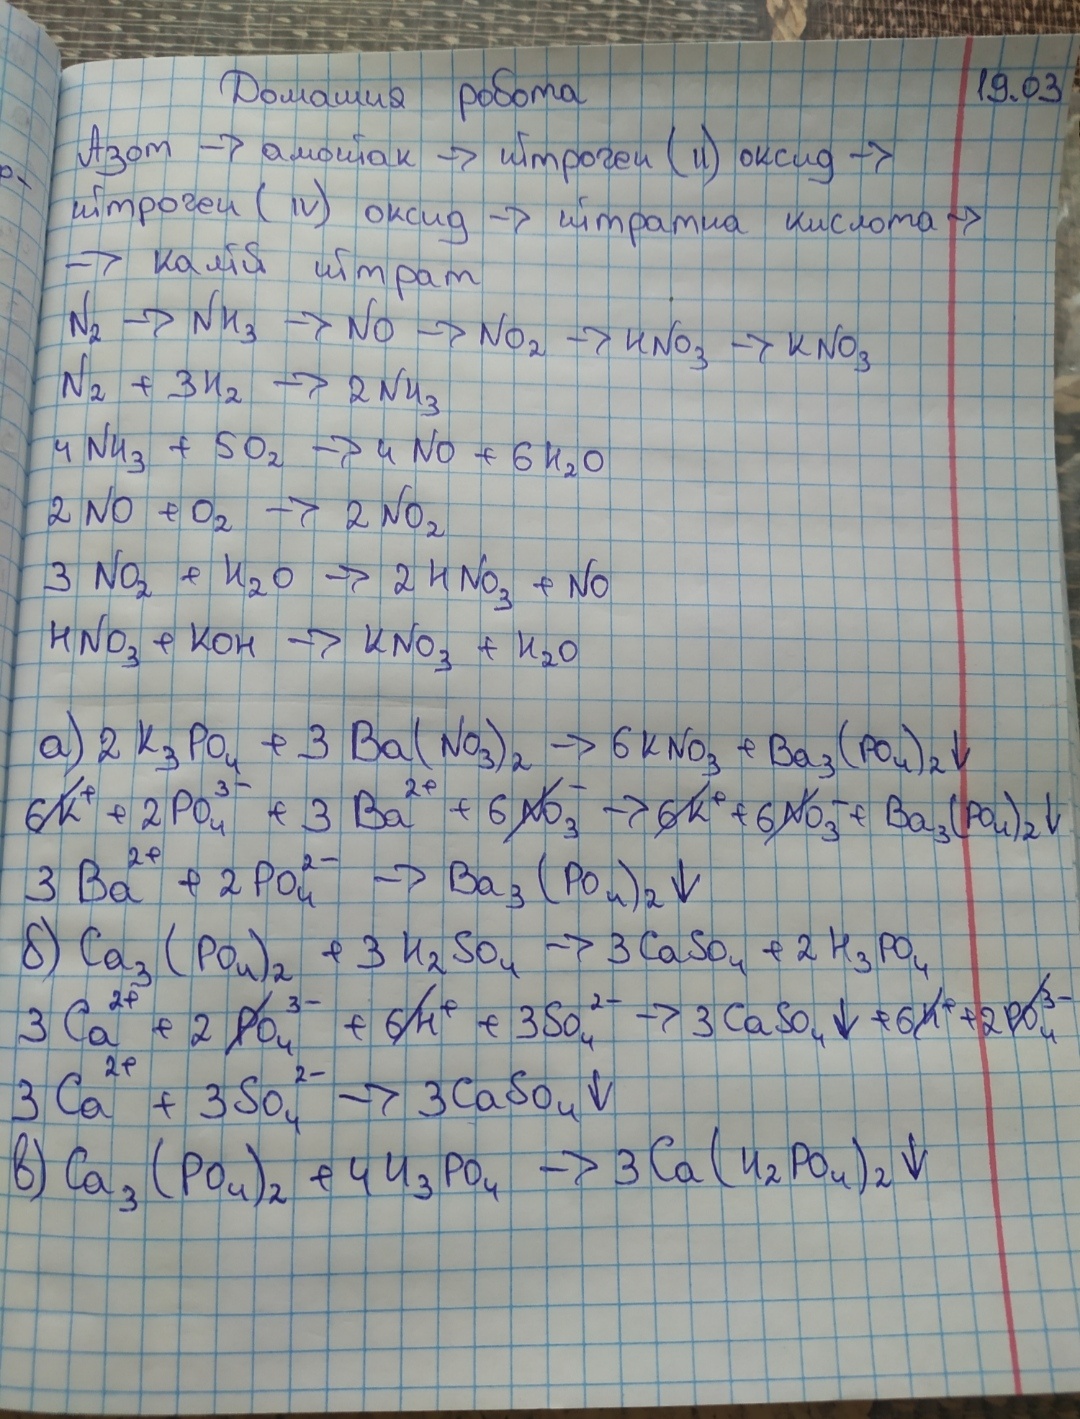 Домашня робота 19.03
Азот → амоніак → нітроген (II) оксид →
нітроген (IV) оксид → нітратна кислота →
→ калій нітрат
N₂ → NH₃ → NO → NO₂ → HNO₃ → KNO₃
N₂ + 3H₂ → 2NH₃
4NH₃ + 5O₂ → 4NO + 6H₂O
2NO + O₂ → 2NO₂
3NO₂ + H₂O → 2HNO₃ + NO
HNO₃ + KOH → KNO₃ + H₂O
а) 2K₃PO₄ + 3Ba(NO₃)₂ → 6KNO₃ + Ba₃(PO₄)₂↓
6K⁺ + 2PO₄³⁻ + 3Ba²⁺ + 6NO₃⁻ → 6K⁺ + 6NO₃⁻ + Ba₃(PO₄)₂↓
3Ba²⁺ + 2PO₄²⁻ → Ba₃(PO₄)₂↓
б) Ca₃(PO₄)₂ + 3H₂SO₄ → 3CaSO₄ + 2H₃PO₄
3Ca²⁺ + 2PO₄³⁻ + 6H⁺ + 3SO₄²⁻ → 3CaSO₄↓ + 6H⁺ + 2PO₄³⁻
3Ca²⁺ + 3SO₄²⁻ → 3CaSO₄↓
в) Ca₃(PO₄)₂ + 4H₃PO₄ → 3Ca(H₂PO₄)₂↓